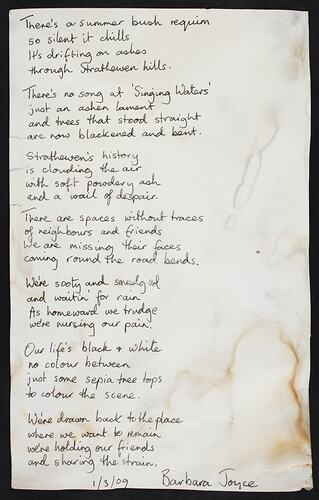 There's a summer bush requim
so silent it chills
It's drifting on ashes
through Strathewen hills.
There's no song at 'Singing Waters'
just an ashen lament
and trees that stood straight
are now blackened and bent.
Strathewen's history
is clouding the air
with soft powdery ash
and a wail of despair.
There are spaces without traces
of neighbours and friends
We are missing their faces
coming round the road bends.
We're sooty and smudged
and waitin' for rain
As homeward we trudge
we're nursing our pain.
Our life's black & white
no colour between
just some sepia tree tops
to colour the scene.
We're drawn back to the place
where we want to remain
we're holding our friends
and sharing the strain.
1/3/09 Barbara Joyce